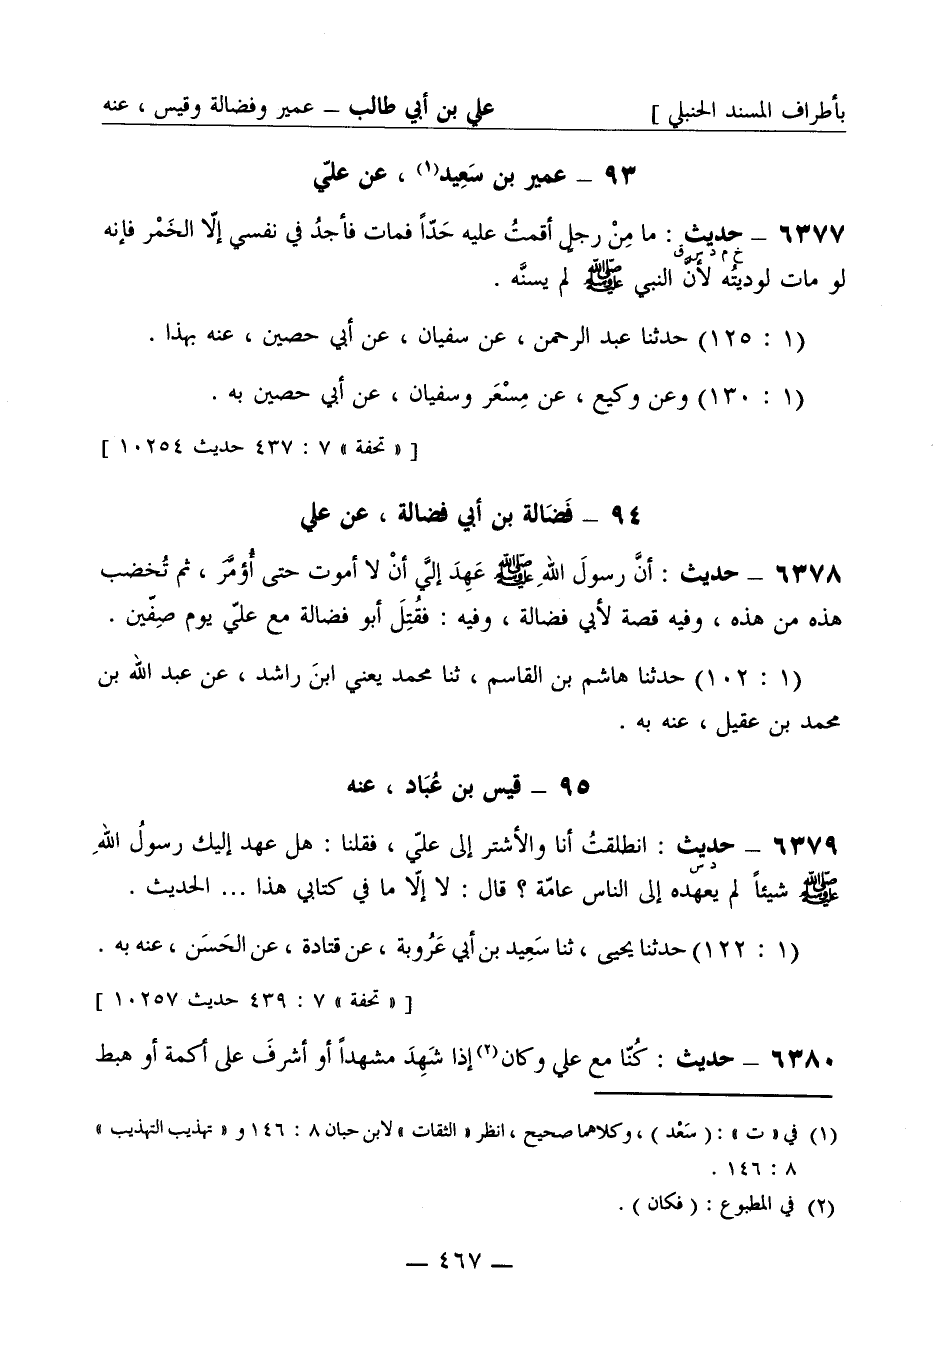 بأطراف المسند الحنبلي ] علي بن أبي طالب – عمير وفضالة وقيس ، عنه
٩٣ – عمير بن سَعِيد(١) ، عن عليّ
٦٣٧٧ – حديث : ما مِنْ رجلٍ أقمتُ عليه حَدّاً فمات فأجدُ في نفسي إلّا الخَمْر فإنه
خ م د س ق
لو مات لوديتُه لأنَّ النبي ﷺ لم يسنَّه .
(١ : ١٢٥) حدثنا عبد الرحمن ، عن سفيان ، عن أبي حصين ، عنه بهذا .
(١ : ١٣٠) وعن وكيع ، عن مِسْعَر وسفيان ، عن أبي حصين به .
[ « تحفة » ٧ : ٤٣٧ حديث ١٠٢٥٤ ]
٩٤ – فَضَالة بن أبي فضالة ، عن علي
٦٣٧٨ – حديث : أنَّ رسولَ اللهِ ﷺ عَهِدَ إليَّ أنْ لا أموت حتى أُؤمَّرَ ، ثم تُخضب
هذه من هذه ، وفيه قصة لأبي فضالة ، وفيه : فقُتِلَ أبو فضالة مع عليّ يوم صِفّين .
(١ : ١٠٢) حدثنا هاشم بن القاسم ، ثنا محمد يعني ابنَ راشد ، عن عبد الله بن
محمد بن عقيل ، عنه به .
٩٥ – قيس بن عُبَاد ، عنه
٦٣٧٩ – حديث : انطلقتُ أنا والأشتر إلى عليّ ، فقلنا : هل عهد إليك رسولُ اللهِ
د س
ﷺ شيئاً لم يعهده إلى الناس عامّة ؟ قال : لا إلّا ما في كتابي هذا ... الحديث .
(١ : ١٢٢) حدثنا يحيى ، ثنا سَعِيد بن أبي عَرُوبة ، عن قتادة ، عن الحَسَن ، عنه به .
[ « تحفة » ٧ : ٤٣٩ حديث ١٠٢٥٧ ]
٦٣٨٠ – حديث : كُنّا مع علي وكان(٢) إذا شَهِدَ مشهداً أو أشرفَ على أكمة أو هبط
(١) في « ت » : ( سَعْد ) ، وكلاهما صحيح ، انظر « الثقات » لابن حبان ٨ : ١٤٦ و « تهذيب التهذيب »
٨ : ١٤٦ .
(٢) في المطبوع : ( فكان ) .
– ٤٦٧ –